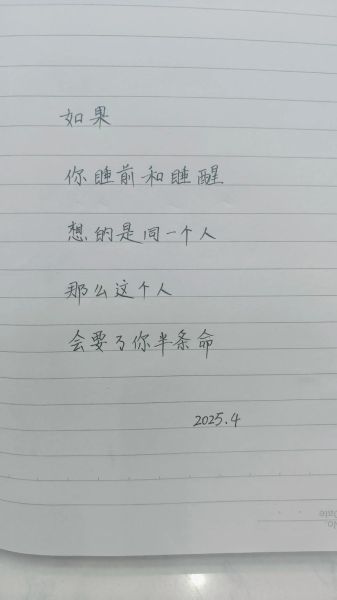 如果
你睡前和睡醒
想的是同一个人
那么这个人
会要了你半条命
2025.4
No.
Date